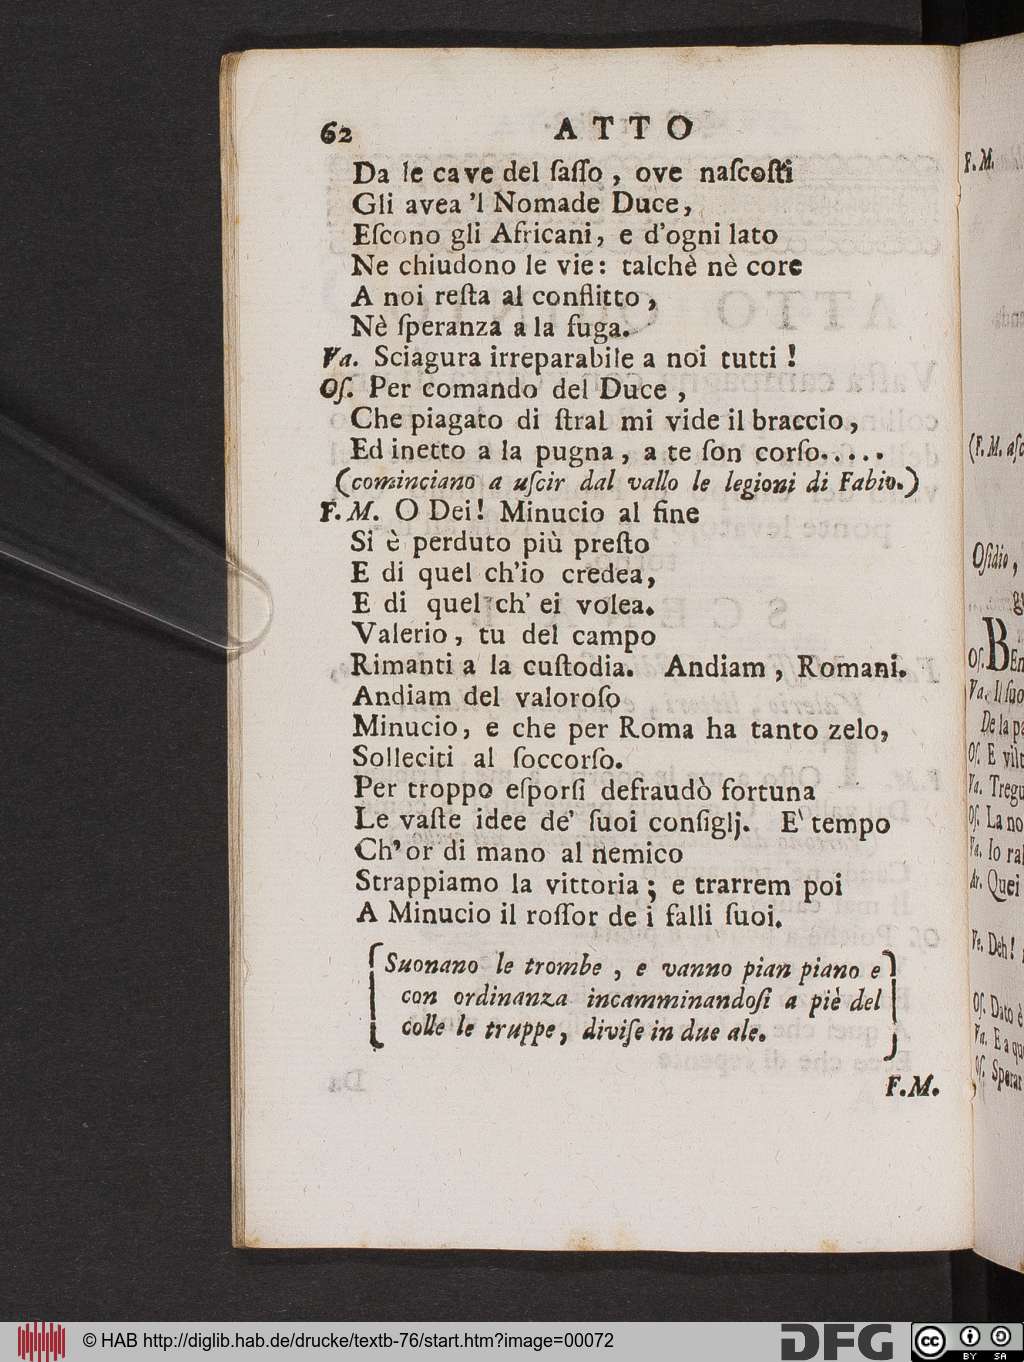 62 ATTO
Da le cave del ſaſſo, ove naſcoſti
Gli avea 'l Nomade Duce,
Eſcono gli Africani, e d'ogni lato
Ne chiudono le vie: talchè nè core
A noi reſta al conflitto,
Nè ſperanza a la fuga.
Va. Sciagura irreparabile a noi tutti!
Oſ. Per comando del Duce,
Che piagato di ſtral mi vide il braccio,
Ed inetto a la pugna, a te ſon corſo.....
(cominciano a uſcir dal vallo le legioni di Fabio.)
F.M. O Dei! Minucio al fine
Si è perduto più preſto
E di quel ch'io credea,
E di quel ch' ei volea.
Valerio, tu del campo
Rimanti a la cuſtodia. Andiam, Romani.
Andiam del valoroſo
Minucio, e che per Roma ha tanto zelo,
Solleciti al ſoccorſo.
Per troppo eſporſi defraudò fortuna
Le vaſte idee de' ſuoi conſiglj. E' tempo
Ch'or di mano al nemico
Strappiamo la vittoria; e trarrem poi
A Minucio il roſſor de i falli ſuoi.
[Suonano le trombe, e vanno pian piano e
con ordinanza incamminandoſi a piè del
colle le truppe, diviſe in due ale.]
F.M.
F.M.
(F. M. aſc
Oſidio,
Oſ. BEn
Va. Il ſuo
De la pa
Oſ. E vilt
Va. Tregu
Oſ. La no
Va. Io ral
Ar. Quei
Ve. Deh!
Oſ. Dato è
Va. E a que
Oſ. Sperar
© HAB http://diglib.hab.de/drucke/textb-76/start.htm?image=00072
DFG
cc BY SA